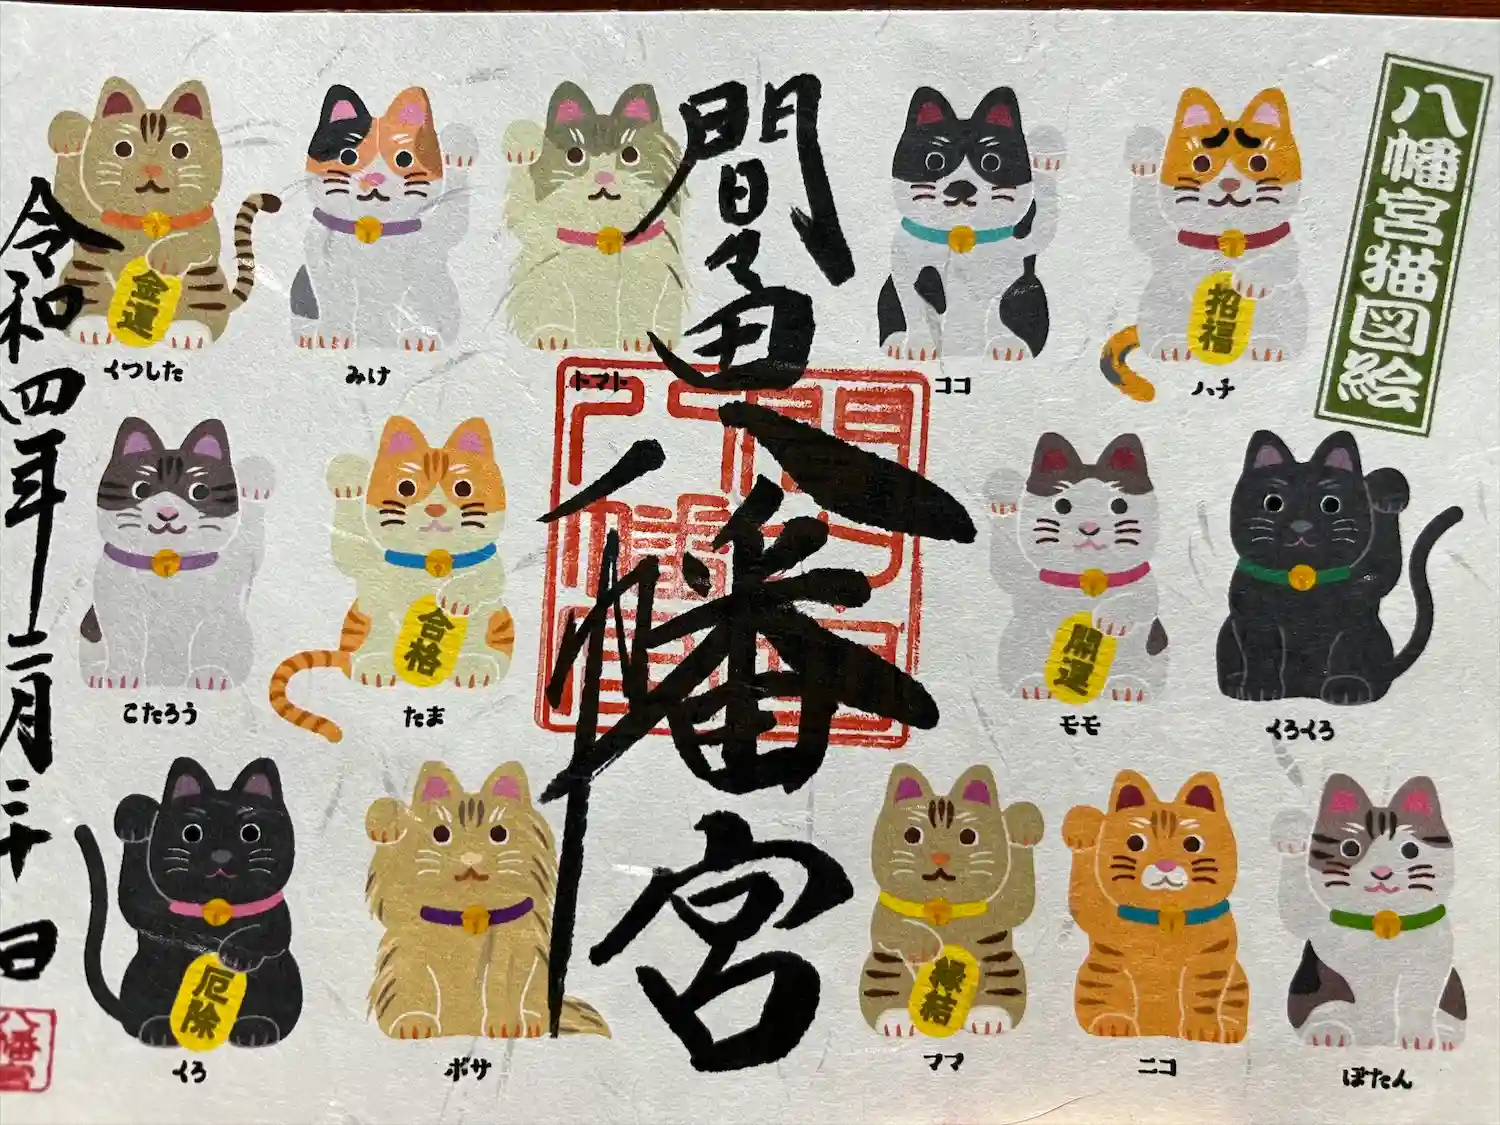 八幡宮猫図絵
間々田八幡宮
令和四年二月二十日
金運
招福
くつした
みけ
トマト
ココ
ハチ
合格
開運
こたろう
たま
モモ
くろくろ
厄除
縁結
くろ
ボサ
ママ
ニコ
ぼたん